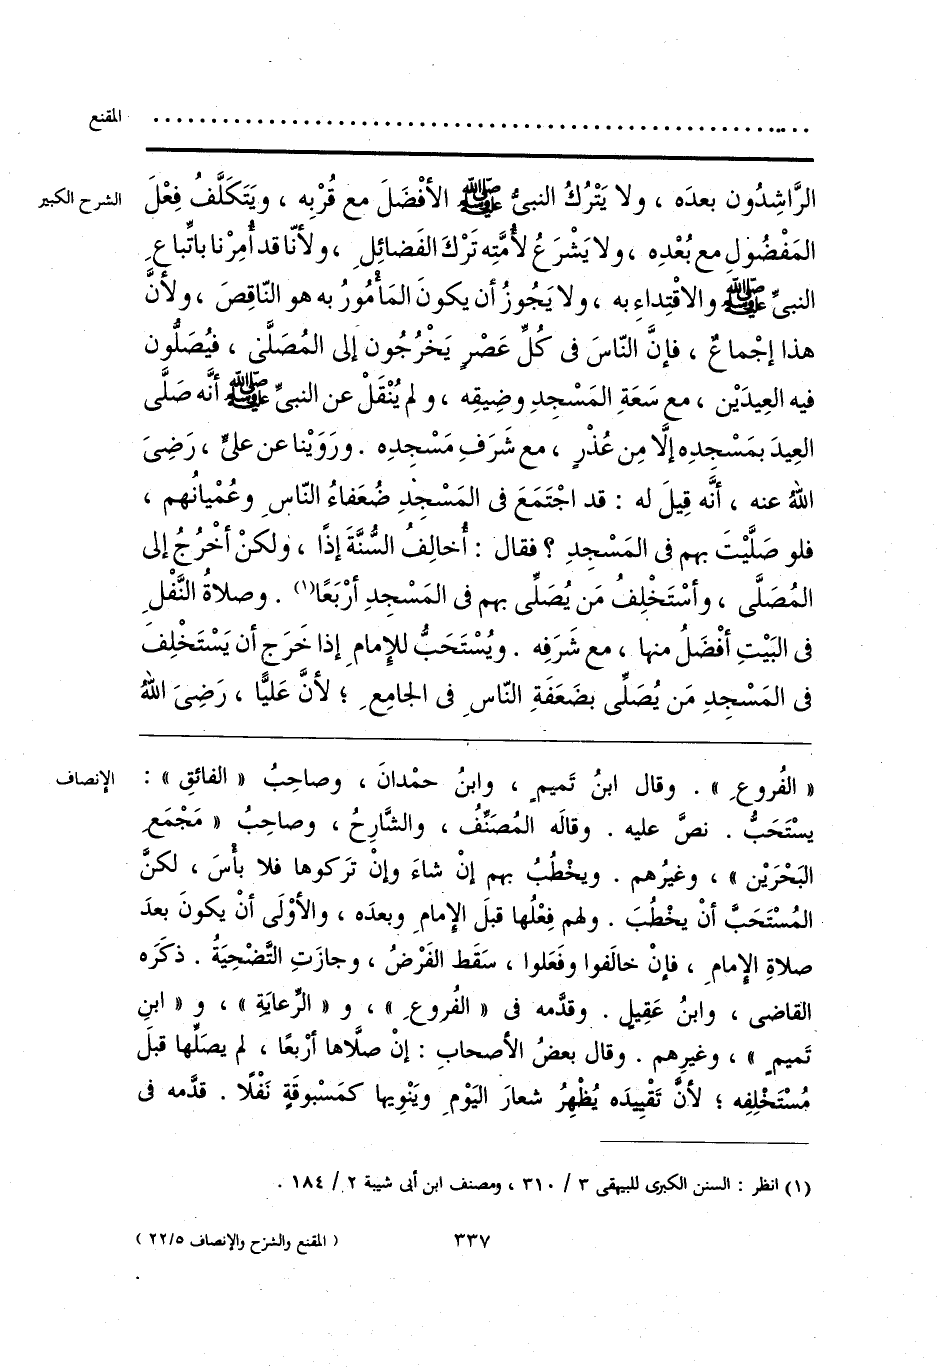 المقنع ........................................................
الشرح الكبير
الرَّاشِدُون بعدَه ، ولا يَتْرُكُ النبىُّ ﷺ الأفْضَلَ مع قُرْبِه ، ويَتَكَلَّفُ فِعْلَ
المَفْضُولِ مع بُعْدِه ، ولا يَشْرَعُ لأُمَّتِه تَرْكَ الفَضائِلِ ، ولأنّا قد أُمِرْنا باتِّباعِ
النبىِّ ﷺ والاقْتِداءِ به ، ولا يَجُوزُ أن يكونَ المَأْمُورُ به هو النّاقِصَ ، ولأنَّ
هذا إجْماعٌ ، فإنَّ النّاسَ فى كُلِّ عَصْرٍ يَخْرُجُون إلى المُصَلَّى ، فيُصَلُّون
فيه العِيدَيْن ، مع سَعَةِ المَسْجِدِ وضِيقِه ، ولم يُنْقَلْ عن النبىِّ ﷺ أنَّه صَلَّى
العِيدَ بمَسْجِدِه إلَّا مِن عُذْرٍ ، مع شَرَفِ مَسْجِدِه . ورَوَيْنا عن علىٍّ ، رَضِىَ
اللهُ عنه ، أنَّه قِيلَ له : قد اجْتَمَعَ فى المَسْجِدِ ضُعَفاءُ النّاسِ وعُمْيانُهم ،
فلو صَلَّيْتَ بهم فى المَسْجِدِ ؟ فقال : أُخالِفُ السُّنَّةَ إذًا ، ولكنْ أخْرُجُ إلى
المُصَلَّى ، وأسْتَخْلِفُ مَن يُصَلِّى بهم فى المَسْجِدِ أرْبَعًا(١) . وصلاةُ النَّفْلِ
فى البَيْتِ أفْضَلُ منها ، مع شَرَفِه . ويُسْتَحَبُّ للإِمامِ إذا خَرَج أن يَسْتَخْلِفَ
فى المَسْجِدِ مَن يُصَلِّى بضَعَفَةِ النّاسِ فى الجامِعِ ؛ لأنَّ عَليًّا ، رَضِىَ اللهُ
الإنصاف
« الفُروعِ » . وقال ابنُ تَميمٍ ، وابنُ حمْدانَ ، وصاحِبُ « الفائقِ » :
يسْتَحَبُّ . نصَّ عليه . وقالَه المُصَنِّفُ ، والشَّارِحُ ، وصاحِبُ « مَجْمَعِ
البَحْرَيْن » ، وغيرُهم . ويخْطُبُ بهم إنْ شاءَ وإنْ تَركوها فلا بأْسَ ، لكنَّ
المُسْتَحَبَّ أنْ يخْطُبَ . ولهم فِعْلُها قبلَ الإِمامِ وبعدَه ، والأوْلَى أنْ يكونَ بعدَ
صلاةِ الإِمامِ ، فإنْ خالَفوا وفَعَلوا ، سقَط الفَرْضُ ، وجازَتِ التَّضْحِيَةُ . ذكَرَه
القاضى ، وابنُ عَقِيلٍ . وقدَّمه فى « الفُروعِ » ، و « الرِّعايَةِ » ، و « ابنِ
تَميمٍ » ، وغيرِهم . وقال بعضُ الأصحابِ : إنْ صلَّاها أرْبعًا ، لم يصَلِّها قبلَ
مُسْتَخْلِفِه ؛ لأنَّ تَقْيِيدَه يُظْهِرُ شعارَ اليَوْمِ ويَنْوِيها كمَسْبوقَةٍ نَفْلًا . قدَّمه فى
(١) انظر : السنن الكبرى للبيهقى ٣ / ٣١٠ ، ومصنف ابن أبى شيبة ٢ / ١٨٤ .
٣٣٧
( المقنع والشرح والإنصاف ٢٢/٥ )